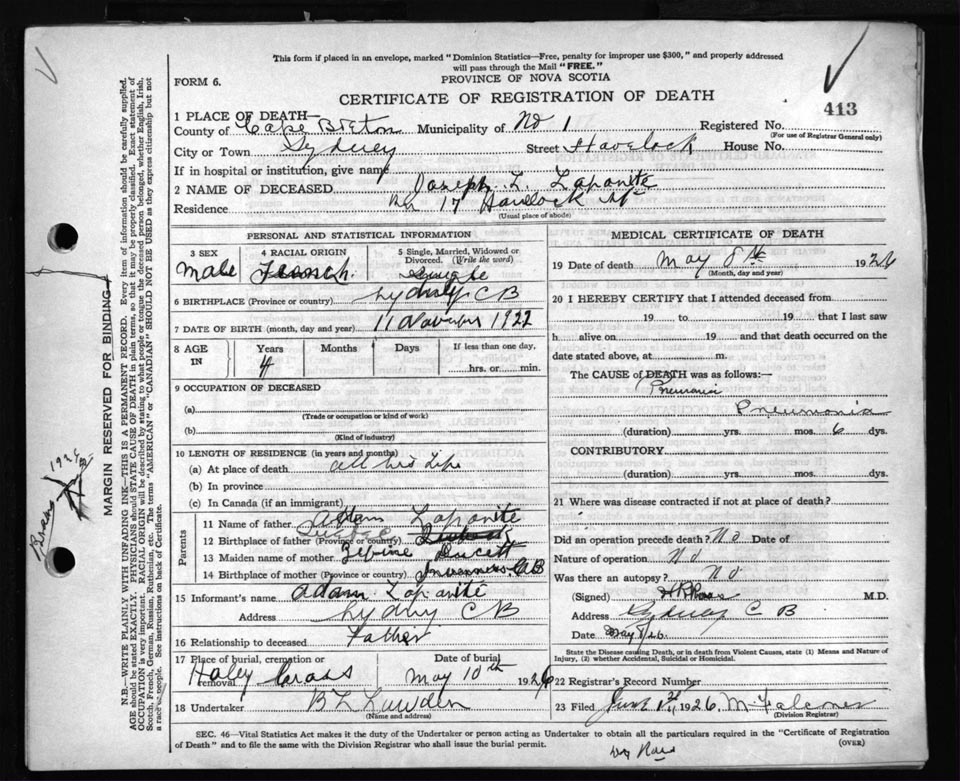 This form if placed in an envelope, marked "Dominion Statistics—Free, penalty for improper use $300," and properly addressed
will pass through the Mail "FREE."
FORM 6.
PROVINCE OF NOVA SCOTIA
CERTIFICATE OF REGISTRATION OF DEATH
413
1 PLACE OF DEATH—
County of Cape Breton Municipality of No 1 Registered No.
(For use of Registrar General only)
City or Town Sydney Street Havelock House No.
If in hospital or institution, give name
2 NAME OF DECEASED Joseph L. Lapointe
Residence No 17 Havelock St
(Usual place of abode)
PERSONAL AND STATISTICAL INFORMATION
3 SEX 4 RACIAL ORIGIN 5 Single, Married, Widowed or Divorced. (Write the word)
Male French. Single
6 BIRTHPLACE (Province or country) Sydney C B
7 DATE OF BIRTH (month, day and year) 11 November 1922
8 AGE IN Years Months Days If less than one day,
4 hrs. or min.
9 OCCUPATION OF DECEASED
(a)
(Trade or occupation or kind of work)
(b)
(Kind of industry)
10 LENGTH OF RESIDENCE (in years and months)
(a) At place of death all his Life
(b) In province
(c) In Canada (if an immigrant)
Parents
11 Name of father Adam Lapointe
12 Birthplace of father (Province or country) Quebec
13 Maiden name of mother Doucett
14 Birthplace of mother (Province or country) Inverness, C B
15 Informant's name Adam Lapointe
Address Sydney C B
16 Relationship to deceased Father
17 Place of burial, cremation or removal Date of burial
Holey Cross May 10th 1926
18 Undertaker B L Lowden
(Name and address)
MEDICAL CERTIFICATE OF DEATH
19 Date of death May 8th 1926
(Month, day and year)
20 I HEREBY CERTIFY that I attended deceased from
19 to 19 that I last saw
h alive on 19 and that death occurred on the
date stated above, at m.
The CAUSE of DEATH was as follows:—
Pneumonia
(duration) yrs. mos. 6 dys.
CONTRIBUTORY
(duration) yrs. mos. dys.
21 Where was disease contracted if not at place of death?
Did an operation precede death? No Date of
Nature of operation No
Was there an autopsy? No
(Signed) M.D.
Address Sydney C B
Date May 8/26
State the Disease causing Death, or in death from Violent Causes, state (1) Means and Nature of
Injury, (2) whether Accidental, Suicidal or Homicidal.
22 Registrar's Record Number
23 Filed June 1926 M Falconer
(Division Registrar)
SEC. 46—Vital Statistics Act makes it the duty of the Undertaker or person acting as Undertaker to obtain all the particulars required in the "Certificate of Registration
of Death" and to file the same with the Division Registrar who shall issue the burial permit.
(OVER)
MARGIN RESERVED FOR BINDING
N.B.—WRITE PLAINLY WITH UNFADING INK—THIS IS A PERMANENT RECORD. Every item of information should be carefully supplied.
AGE should be stated EXACTLY. PHYSICIANS should STATE CAUSE OF DEATH in plain terms, so that it may be properly classified. Exact statement of
OCCUPATION is very important. RACIAL ORIGIN will be described by stating to what people or tongue the deceased person belonged, whether English, Irish,
Scotch, French, German, Russian, Ruthenian, etc. The terms "AMERICAN" or "CANADIAN" SHOULD NOT BE USED as they express citizenship but not
a race or people. See instructions on back of Certificate.